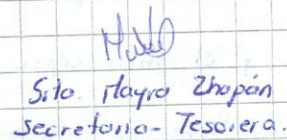 Srta. Mayra Zhapán
Secretaria - Tesorera.